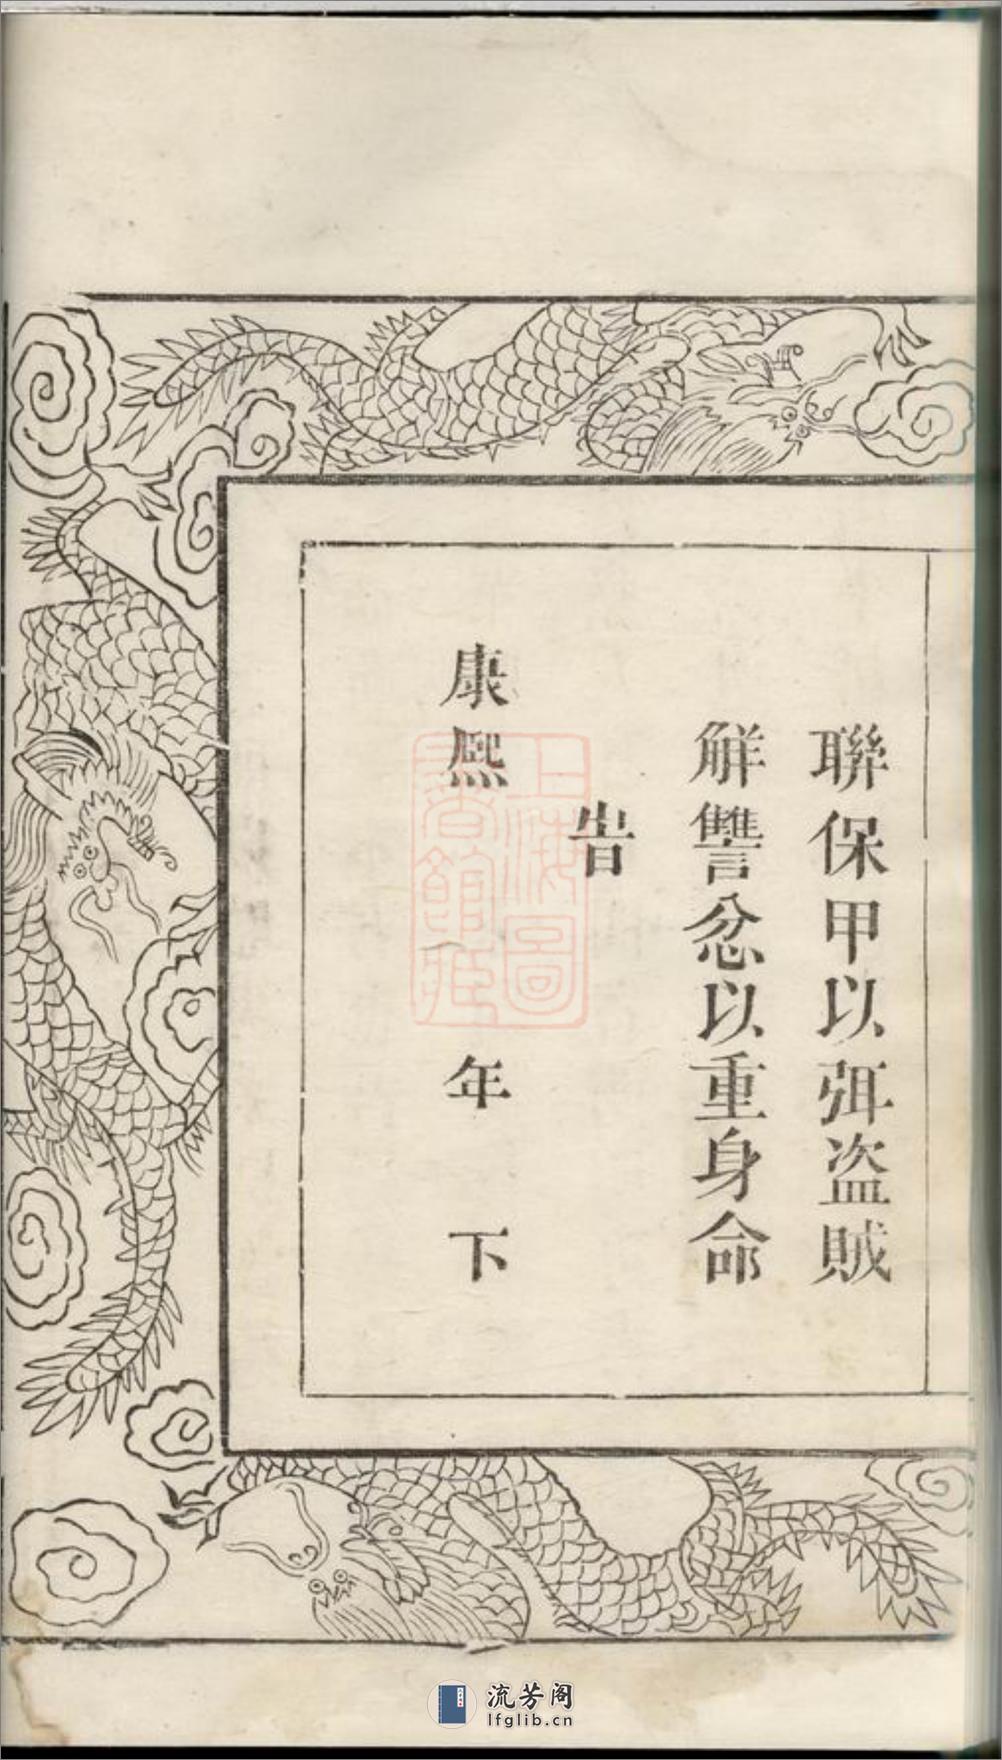 聯保甲以弭盗賊
觧讐忿以重身命
告
康熙 年 下
上海圖書館藏
流芳阁
lfglib.cn